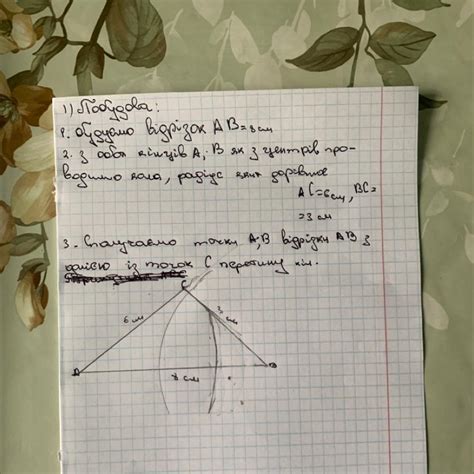 1) Побудова:
1. будуємо відрізок AB = 8 см
2. З обох кінців A, B як з центрів про-
водимо кола, радіус яких дорівнює
AC=6см, BC=
=3 см
3. Сполучаємо точки A, B відрізку AB з
однією із точок C перетину кіл.
C
6 см
3 см
A
8 см
B